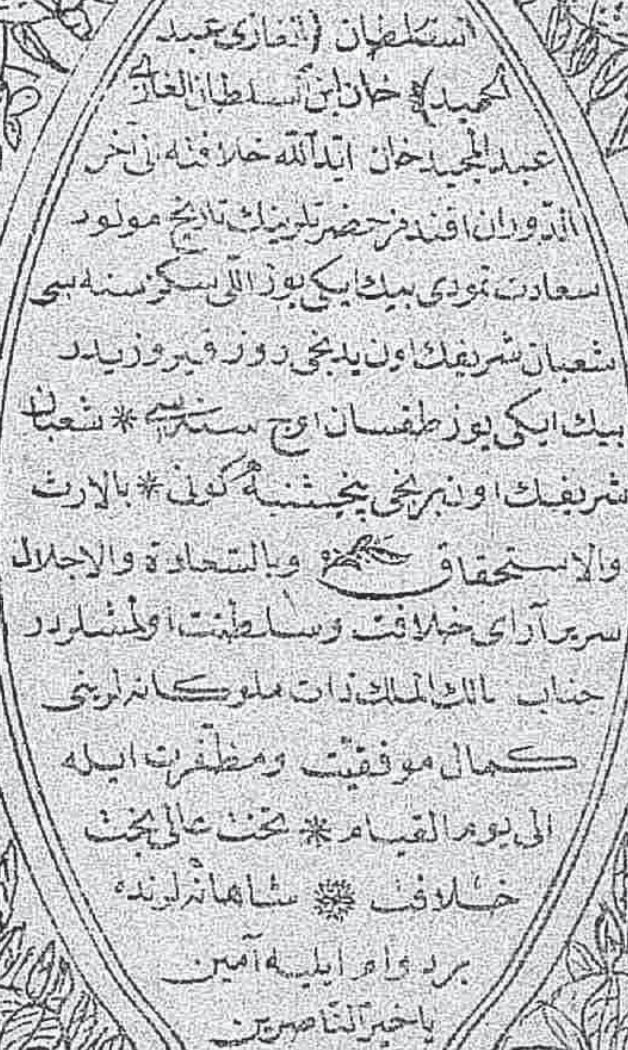 السلطان الغازی عبد
الحمید خان ابن السلطان الغازی
عبدالمجید خان ایدالله خلافته الی آخر
الدوران افندمز حضرتلرینك تاریخ مولود
سعادت نمودی بیك ایکی یوز اللی سکز سنه سی
شعبان شریفك اون یدنجی روز فیروزیدر
بیك ایکی یوز طقسان اوچ سنه سی * شعبان
شریفك اون برنجی پنجشنبه کونی * بالارث
والاستحقاق وبالسعادة والاجلال
سریر آرای خلافت وسلطنت اولمشلردر
جناب مالك الملك ذات ملوکانه لرینی
کمال موفقیت ومظفریت ایله
الی یوم القیام * تخت عالی بخت
خلافت * شاهانه لرنده
بردوام ایلیه آمین
یا خیر الناصرین